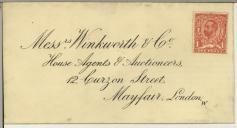 Mess.rs Winkworth & Co.
House Agents & Auctioneers,
12 Curzon Street,
Mayfair, London
W